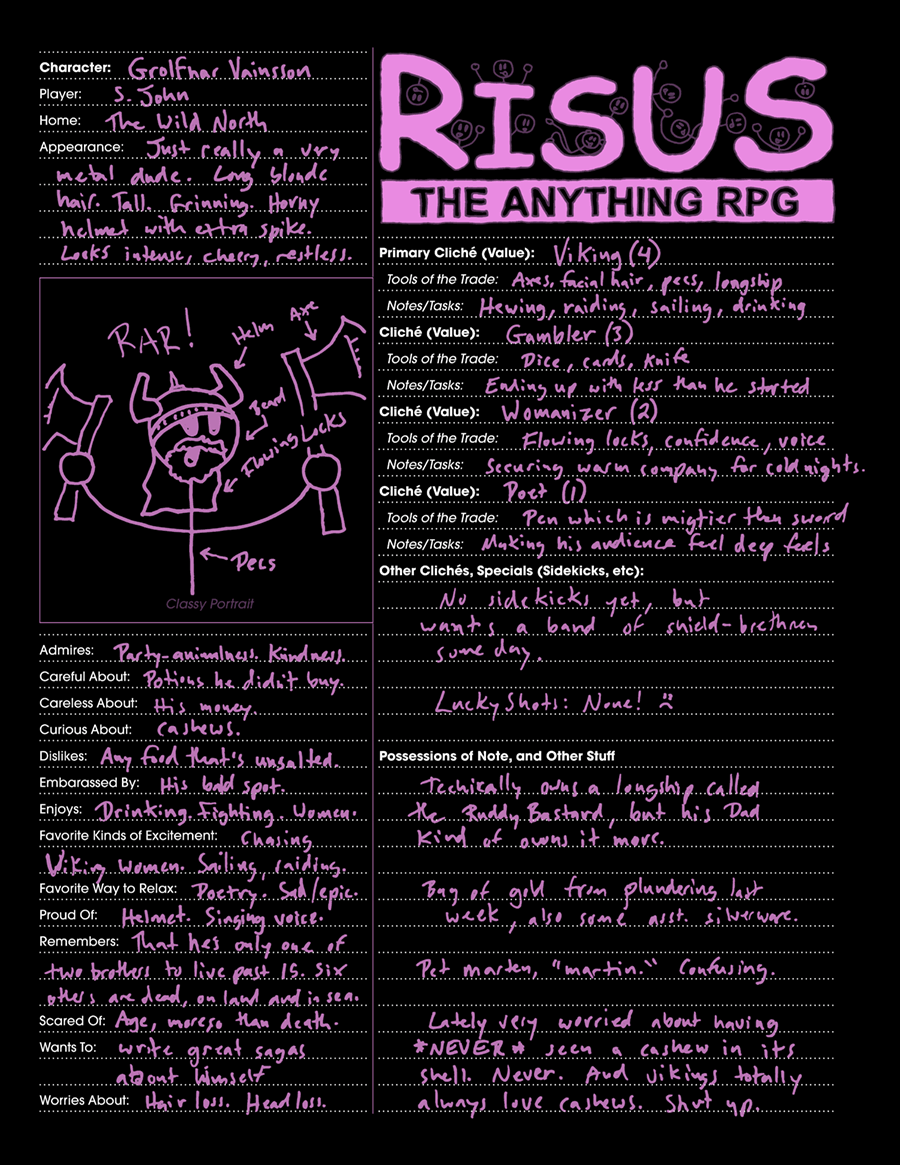 Character: Grolfnar Vainsson
Player: S. John
Home: The Wild North
Appearance: Just really a very
metal dude. Long blonde
hair. Tall. Grinning. Horny
helmet with extra spike.
Looks intense, cheery, restless.
RAR!
Helm
Axe
Beard
Flowing Locks
Pecs
Classy Portrait
Admires: Party-animalness. Kindness.
Careful About: Potions he didn't buy.
Careless About: His money.
Curious About: Cashews.
Dislikes: Any food that's unsalted.
Embarassed By: His bald spot.
Enjoys: Drinking. Fighting. Women.
Favorite Kinds of Excitement: Chasing
Viking Women. Sailing, raiding.
Favorite Way to Relax: Poetry. Sad/epic.
Proud Of: Helmet. Singing voice.
Remembers: That he's only one of
two brothers to live past 15. Six
others are dead, on land and in sea.
Scared Of: Age, moreso than death.
Wants To: write great sagas
about himself
Worries About: Hair loss. Head loss.
RISUS
THE ANYTHING RPG
Primary Cliché (Value): Viking (4)
Tools of the Trade: Axes, facial hair, pecs, longship
Notes/Tasks: Hewing, raiding, sailing, drinking
Cliché (Value): Gambler (3)
Tools of the Trade: Dice, cards, knife
Notes/Tasks: Ending up with less than he started
Cliché (Value): Womanizer (2)
Tools of the Trade: Flowing locks, confidence, voice
Notes/Tasks: Securing warm company for cold nights.
Cliché (Value): Poet (1)
Tools of the Trade: Pen which is migtier than sword
Notes/Tasks: Making his audience feel deep feels
Other Clichés, Specials (Sidekicks, etc):
No sidekicks yet, but
wants a band of shield-brethren
some day.
Lucky Shots: None! :(
Possessions of Note, and Other Stuff
Techically owns a longship called
the Ruddy Bastard, but his Dad
kind of owns it more.
Bag of gold from plundering last
week, also some asst. silverware.
Pet marten, "martin." Confusing.
Lately very worried about having
*NEVER* seen a cashew in its
shell. Never. And vikings totally
always love cashews. Shut up.